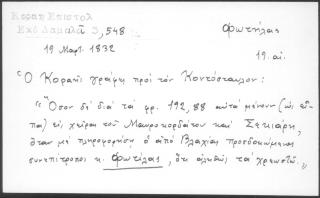 Κοραῆ Ἐπιστολ
Ἐκδ Δαμαλᾶ 3, 548
Φωτήλας
19 Μαρτ. 1832
19. αἰ.
Ὁ Κοραῆς γράφει πρὸς τὸν Κοντόσταυλον:
"Ὅσον δὲ διὰ τὰ φρ. 192,88 αὐτὰ μένουν (ὡς εἶ-
πα) εἰς χεῖρας τοῦ Μαυροκορδάτου καὶ Σεκιάρη,
ὅταν μὲ πληροφορήσῃ ὁ ἀπὸ Βλαχίας προσδοκώμενος
συνεπίτροπος κ. Φωτίλας, ὅτι ἀληθῶς τὰ χρεωστῶ."